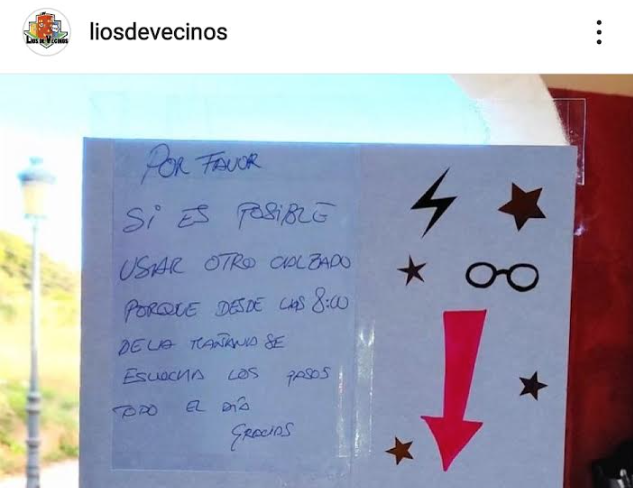 LIOS DE VECINOS
liosdevecinos
POR FAVOR
SI ES POSIBLE
USAR OTRO CALZADO
PORQUE DESDE LAS 8:00
DE LA MAÑANA SE
ESCUCHA LOS PASOS
TODO EL DÍA
GRACIAS